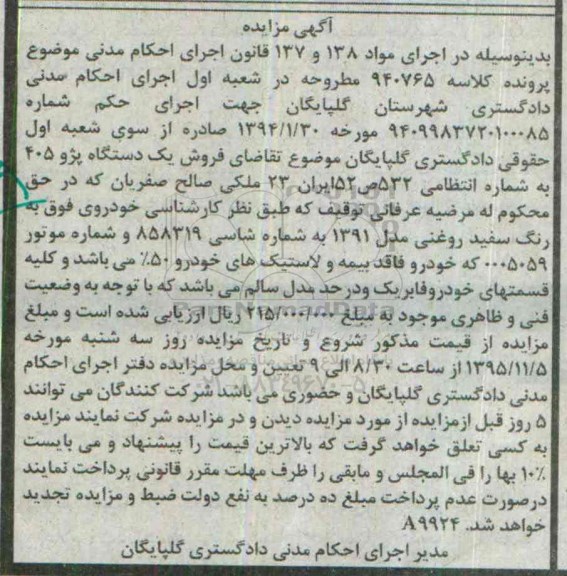 آگهی مزایده
بدینوسیله در اجرای مواد ۱۳۸ و ۱۳۷ قانون اجرای احکام مدنی موضوع
پرونده کلاسه ۹۴۰۷۶۵ مطروحه در شعبه اول اجرای احکام مدنی
دادگستری شهرستان گلپایگان جهت اجرای حکم شماره
۹۴۰۹۹۸۳۷۲۰۱۰۰۰۸۵ مورخه ۱۳۹۴/۱/۳۰ صادره از سوی شعبه اول
حقوقی دادگستری گلپایگان موضوع تقاضای فروش یک دستگاه پژو ۴۰۵
به شماره انتظامی ۵۳۲ص۵۲ایران ۲۳ ملکی صالح صفریان که در حق
محکوم له مرضیه عرفانی توقیف که طبق نظر کارشناسی خودروی فوق به
رنگ سفید روغنی مدل ۱۳۹۱ به شماره شاسی ۸۵۸۳۱۹ و شماره موتور
۰۰۰۵۰۵۹ که خودرو فاقد بیمه و لاستیک های خودرو ۵۰٪ می باشد و کلیه
قسمتهای خودروفابریک ودرحد مدل سالم می باشد که با توجه به وضعیت
فنی و ظاهری موجود به مبلغ ۲۱۵/۰۰۰/۰۰۰ ریال ارزیابی شده است و مبلغ
مزایده از قیمت مذکور شروع و تاریخ مزایده روز سه شنبه مورخه
۱۳۹۵/۱۱/۵ از ساعت ۸/۳۰ الی ۹ تعیین و محل مزایده دفتر اجرای احکام
مدنی دادگستری گلپایگان و حضوری می باشد شرکت کنندگان می توانند
۵ روز قبل ازمزایده از مورد مزایده دیدن و در مزایده شرکت نمایند مزایده
به کسی تعلق خواهد گرفت که بالاترین قیمت را پیشنهاد و می بایست
۱۰٪ بها را فی المجلس و مابقی را ظرف مهلت مقرر قانونی پرداخت نمایند
درصورت عدم پرداخت مبلغ ده درصد به نفع دولت ضبط و مزایده تجدید
خواهد شد. A۹۹۲۴
مدیر اجرای احکام مدنی دادگستری گلپایگان